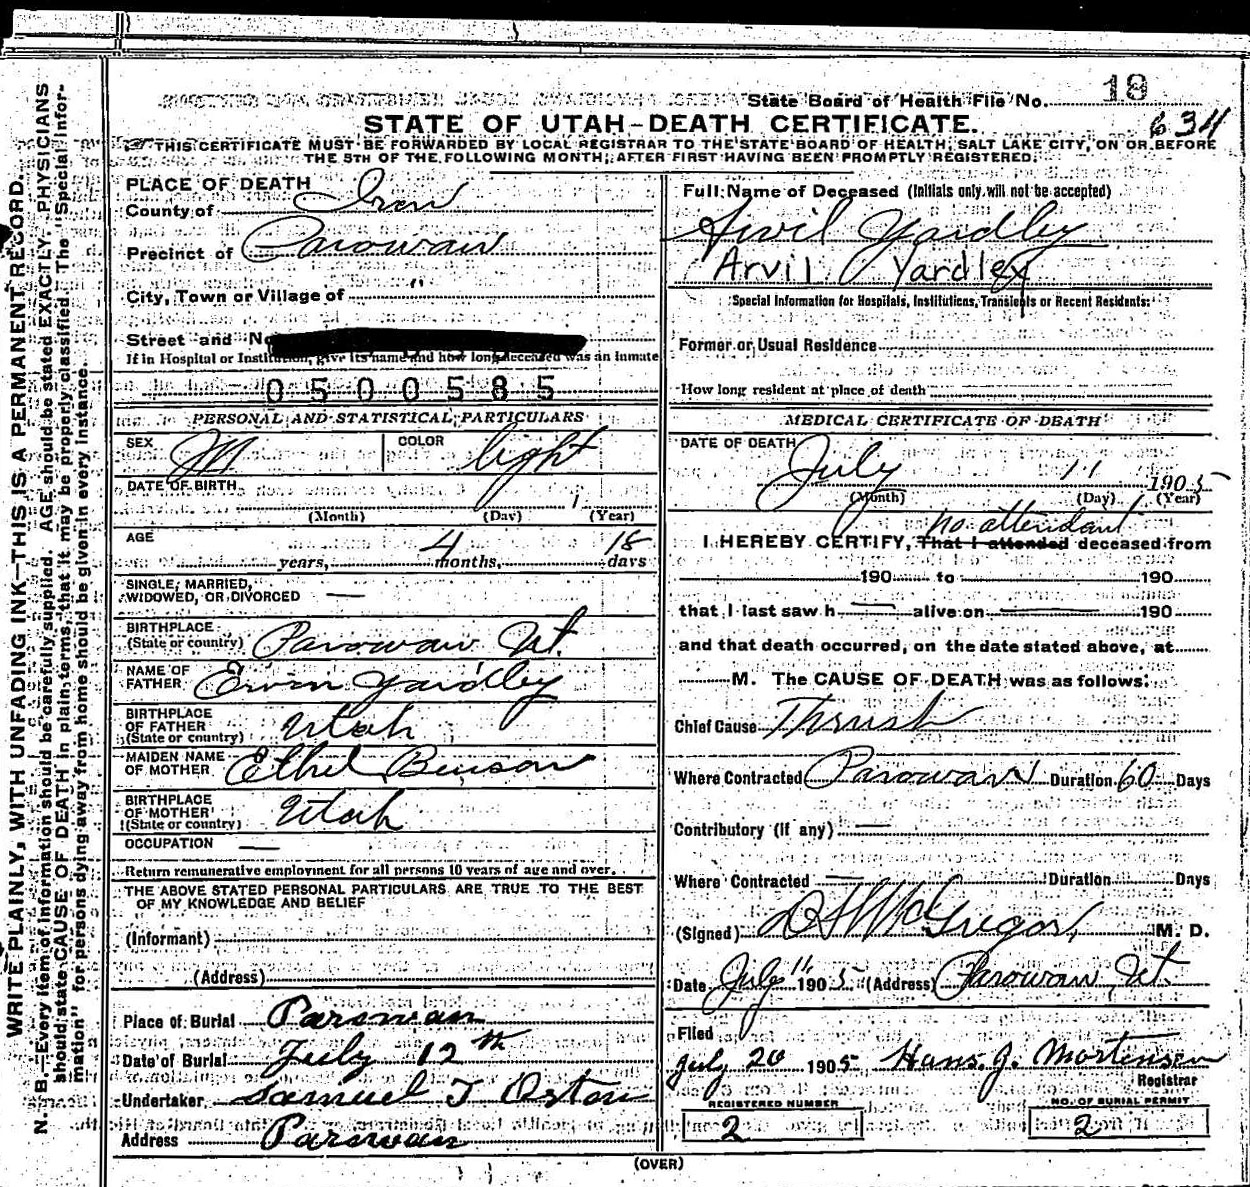 State Board of Health File No. 18
634
STATE OF UTAH-DEATH CERTIFICATE.
THIS CERTIFICATE MUST BE FORWARDED BY LOCAL REGISTRAR TO THE STATE BOARD OF HEALTH, SALT LAKE CITY, ON OR BEFORE
THE 5TH OF THE FOLLOWING MONTH, AFTER FIRST HAVING BEEN PROMPTLY REGISTERED.
WRITE PLAINLY, WITH UNFADING INK—THIS IS A PERMANENT RECORD.
N. B.—Every item of information should be carefully supplied. AGE should be stated EXACTLY. PHYSICIANS
should state CAUSE OF DEATH in plain terms, that it may be properly classified. The "Special Infor-
mation" for persons dying away from home should be given in every instance.
PLACE OF DEATH
County of Iron
Precinct of Parowan
City, Town or Village of "
Street and No
If in Hospital or Institution, give its name and how long deceased was an inmate
0500585
PERSONAL AND STATISTICAL PARTICULARS
SEX M COLOR light
DATE OF BIRTH 1
(Month) (Day) (Year)
AGE 4 18
years, months, days
SINGLE, MARRIED,
WIDOWED, OR DIVORCED —
BIRTHPLACE
(State or country) Parowan Ut.
NAME OF
FATHER Ervin Yardley
BIRTHPLACE
OF FATHER
(State or country) Utah
MAIDEN NAME
OF MOTHER Ethel Benson
BIRTHPLACE
OF MOTHER
(State or country) Utah
OCCUPATION —
Return remunerative employment for all persons 10 years of age and over.
THE ABOVE STATED PERSONAL PARTICULARS ARE TRUE TO THE BEST
OF MY KNOWLEDGE AND BELIEF
(Informant)
(Address)
Place of Burial Parowan
Date of Burial July 12th
Undertaker Samuel T Orton
Address Parowan
Full Name of Deceased (Initials only will not be accepted)
Arvil Yardley
Arvil Yardley
Special Information for Hospitals, Institutions, Transients or Recent Residents:
Former or Usual Residence
How long resident at place of death
MEDICAL CERTIFICATE OF DEATH
DATE OF DEATH
July 11 1905
(Month) (Day) (Year)
no attendant
I HEREBY CERTIFY, That I attended deceased from
190 to 190
that I last saw h — alive on — 190
and that death occurred, on the date stated above, at
M. The CAUSE OF DEATH was as follows:
Chief Cause Thrush
Where Contracted Parowan Duration 60 Days
Contributory (if any) —
Where Contracted — Duration Days
(Signed) McGregor, M. D.
Date July 11 1905 (Address) Parowan Ut.
Filed
July 20 1905 Hans. J. Mortensen
Registrar
REGISTERED NUMBER
2
NO. OF BURIAL PERMIT
2
(OVER)